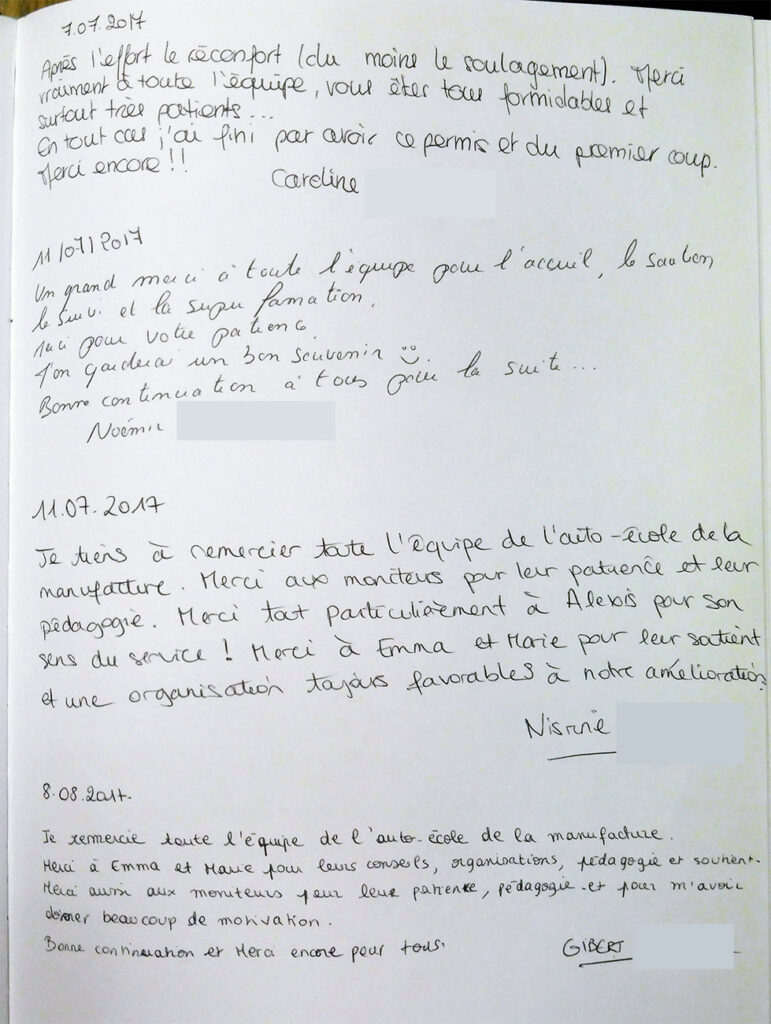 7.07.2017
Après l'effort le réconfort (du moins le soulagement). Merci
vraiment à toute l'équipe, vous êtes tous formidables et
surtout très patients...
En tout cas j'ai fini par avoir ce permis et du premier coup.
Merci encore!!
Caroline
11/07/2017
Un grand merci à toute l'équipe pour l'accueil, le soutien
le suivi et la super formation.
Merci pour votre patience.
J'en garderai un bon souvenir
Bonne continuation à tous pour la suite...
Noémie
11.07.2017
Je tiens à remercier toute l'équipe de l'auto-école de la
manufacture. Merci aux moniteurs pour leur patience et leur
pédagogie. Merci tout particulièrement à Alexis pour son
sens du service ! Merci à Emma et Marie pour leur soutient
et une organisation toujours favorables à notre amélioration
Nisrine
8.08.2017.
Je remercie toute l'équipe de l'auto-école de la manufacture.
Merci à Emma et Marie pour leurs conseils, organisations, pédagogie et soutient.
Merci aussi aux moniteurs pour leur patience, pédagogie et pour m'avoir
donner beaucoup de motivation.
Bonne continuation et Merci encore pour tous.
GIBERT